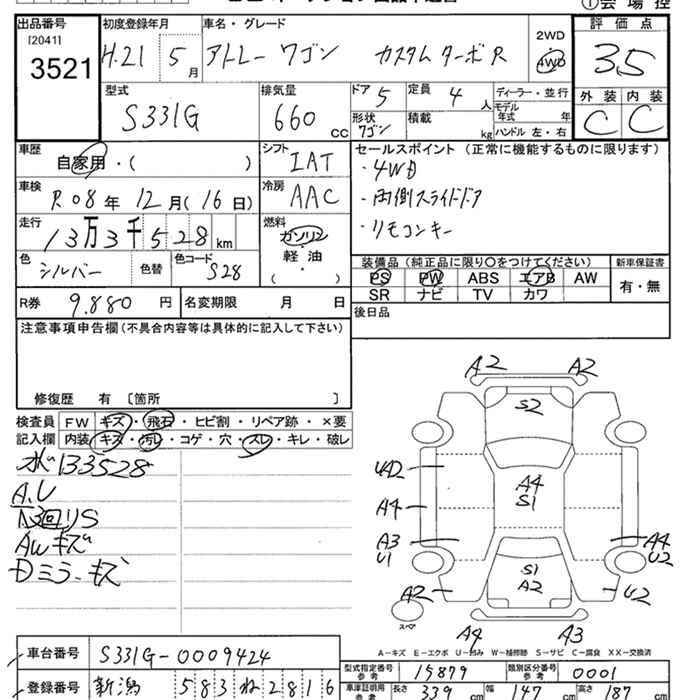 出品番号 初度登録年月 車名・グレード 2WD 評価点
[2041] 3521 H.21 5月 アトレー ワゴン カスタムターボR 4WD 3.5
型式 排気量 ドア 5 定員 4人 ディーラー・並行 外装 内装
S331G 660cc 形状 ワゴン 積載 kg モデル年式 年 ハンドル 左・右 C C
車歴 自家用・( ) シフト IAT セールスポイント (正常に機能するものに限ります)
・4WD
車検 R08年12月(16日) 冷房 AAC ・両側スライドドア
走行 13万3千528km 燃料 ガソリン ・リモコンキー
軽・油
( )
色 シルバー 色替 色コード S28 装備品 (純正品に限り〇をつけてください) 新車保証書
PS PW ABS エアB AW 有・無
R券 9.880円 名変期限 月 日 SR ナビ TV カワ
後日品
注意事項申告欄(不具合内容等は具体的に記入して下さい)
修復歴 有 〔箇所 〕
検査員 FW キズ・飛石・ヒビ割・リペア跡・×要
記入欄 内装 キズ・汚レ・コゲ・穴・スレ・キレ・破レ
133528
A.U
AWキズ
Dミラーキズ
A2 A2
S2
UA2
A4 A4
S1
A3 A4
U1 U2
S1
A2 A2 U2
スペア
A4 A3
A-キズ E-エクボ U-凹み W-補修跡 S-サビ C-腐食 XX-交換済
車台番号 S331G-0009424
型式指定番号 参考 15879 類別区分番号 参考 0001
登録番号 新潟 583 ね 2816
車庫証明用 参考 長さ 339cm 幅 147cm 高さ 187cm